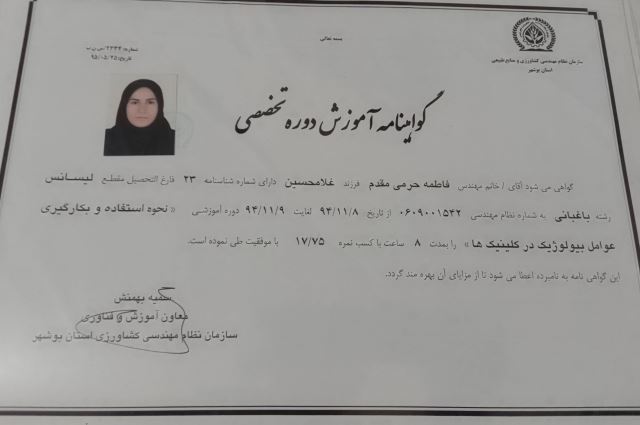 بسمه تعالی
سازمان نظام مهندسی کشاورزی و منابع طبیعی
استان بوشهر
شماره: ۲۳۴۴/س ن ب
تاریخ: ۹۵/۰۵/۲۵
گواهینامه آموزش دوره تخصصی
گواهی می شود آقای / خانم مهندس فاطمه حرمی مقدم فرزند غلامحسین دارای شماره شناسنامه ۲۳ فارغ التحصیل مقطع لیسانس
رشته باغبانی به شماره نظام مهندسی ۰۶۰۹۰۰۱۵۴۲ از تاریخ ۹۴/۱۱/۸ لغایت ۹۴/۱۱/۹ دوره آموزشی « نحوه استفاده و بکارگیری
عوامل بیولوژیک در کلینیک ها » را بمدت ۸ ساعت با کسب نمره ۱۷/۷۵ با موفقیت طی نموده است.
این گواهی نامه به نامبرده اعطا می شود تا از مزایای آن بهره مند گردد.
سمیه بهمنش
معاون آموزش و فناوری
سازمان نظام مهندسی کشاورزی استان بوشهر